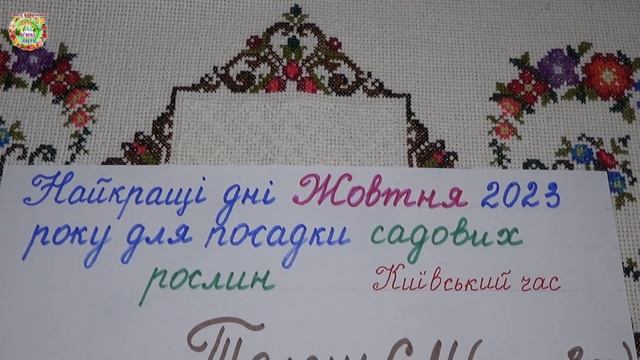 Найкращі дні Жовтня 2023
року для посадки садових
рослин Київський час